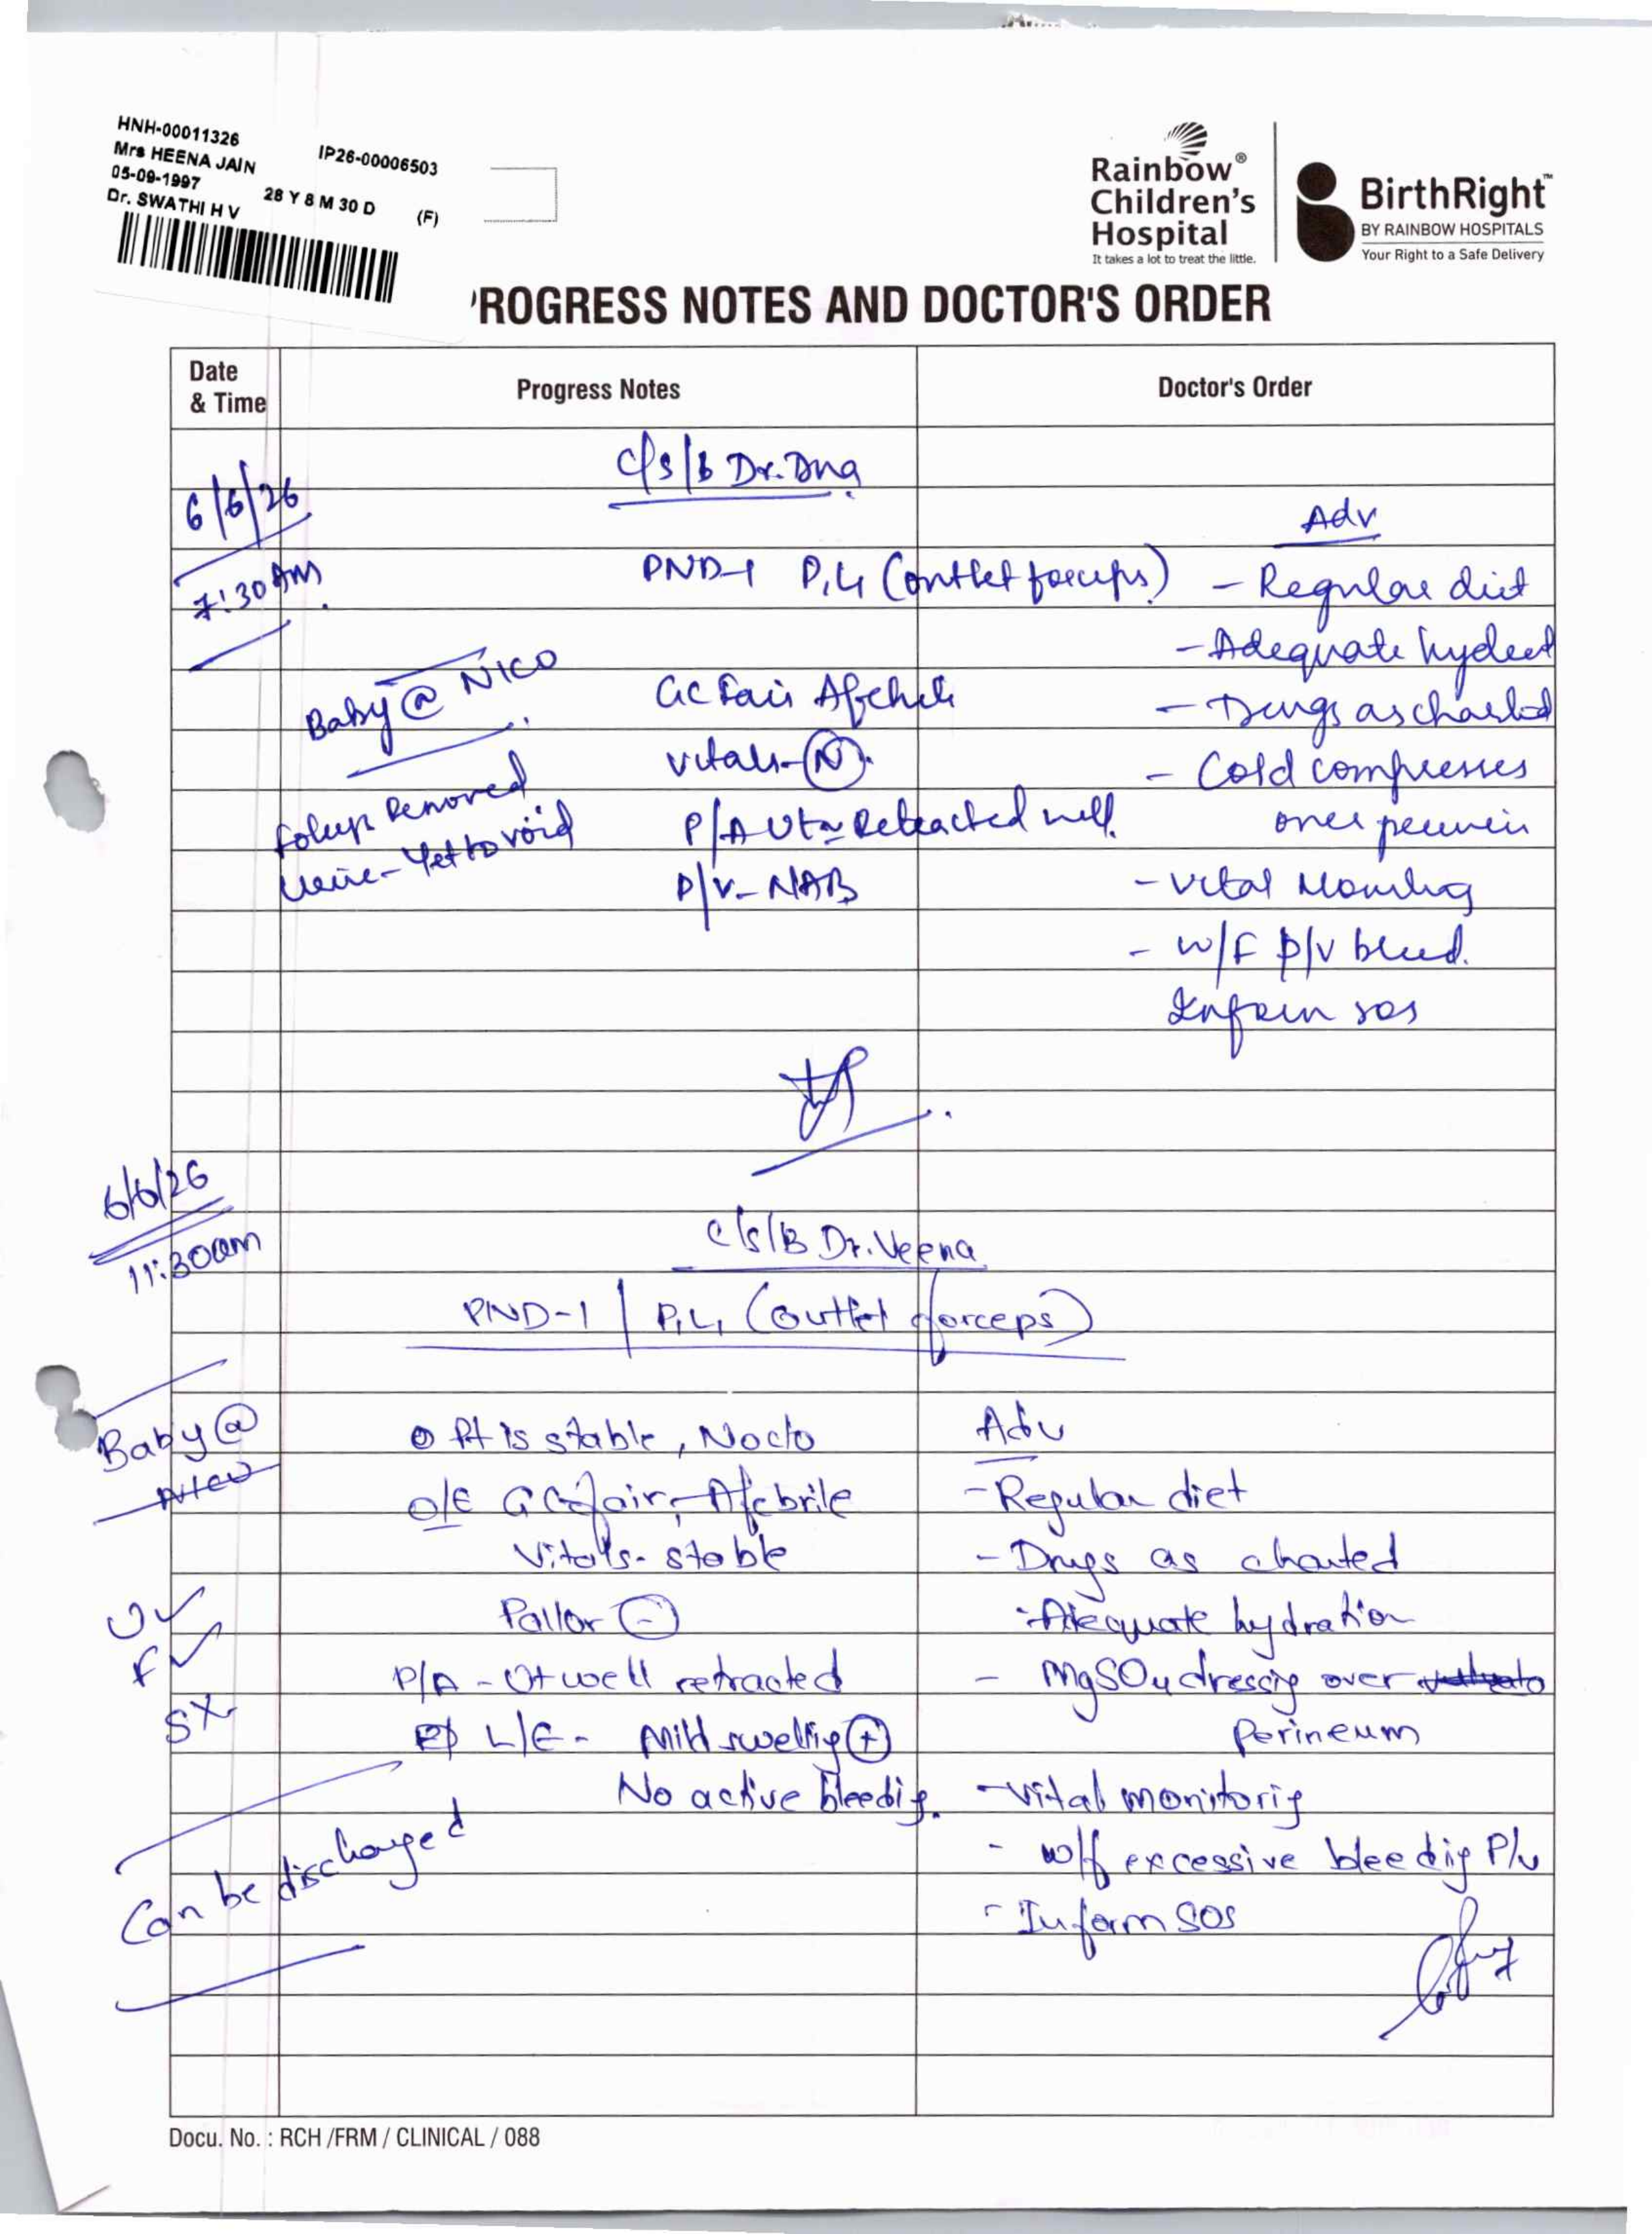 HNH-00011326 IP26-00006503
Mrs HEENA JAIN
05-09-1997 28 Y 8 M 30 D (F)
Dr. SWATHI H V
Rainbow® Children's Hospital
It takes a lot to treat the little.
BirthRight™
BY RAINBOW HOSPITALS
Your Right to a Safe Delivery
'ROGRESS NOTES AND DOCTOR'S ORDER
Date & Time Progress Notes Doctor's Order
6/6/26 c/s/b Dr.
7:30 AM
Adv
PND-1 P1L1 (outlet forceps) - Regular diet
- Adequate hydrat
Baby @ NICU GC Fair Afebrile - Drugs as charted
vitals - (N) - Cold compresses
Foleys Removed P/A Ut Retracted well over perineum
Urine - Yet to void P/V - NAB - vital
- w/F P/V bleed.
Inform sos
6/6/26
11:30am c/s/B Dr. Veena
PND-1 | P1L1 (outlet forceps)
Baby @ NICU Pt is stable, No c/o Adv
O/E GC fair, Afebrile - Regular diet
Vitals - stable - Drugs as charted
U✓ Pallor (-) - Adequate hydration
F✓ P/A - Ut well retracted - MgSO4 dressig over
SX L/E - Mild swellig (+) Perineum
No active bleedig. - Vital monitorig
Can be discharged - w/f excessive bleedig P/v
- Inform SOS
Docu. No. : RCH /FRM / CLINICAL / 088